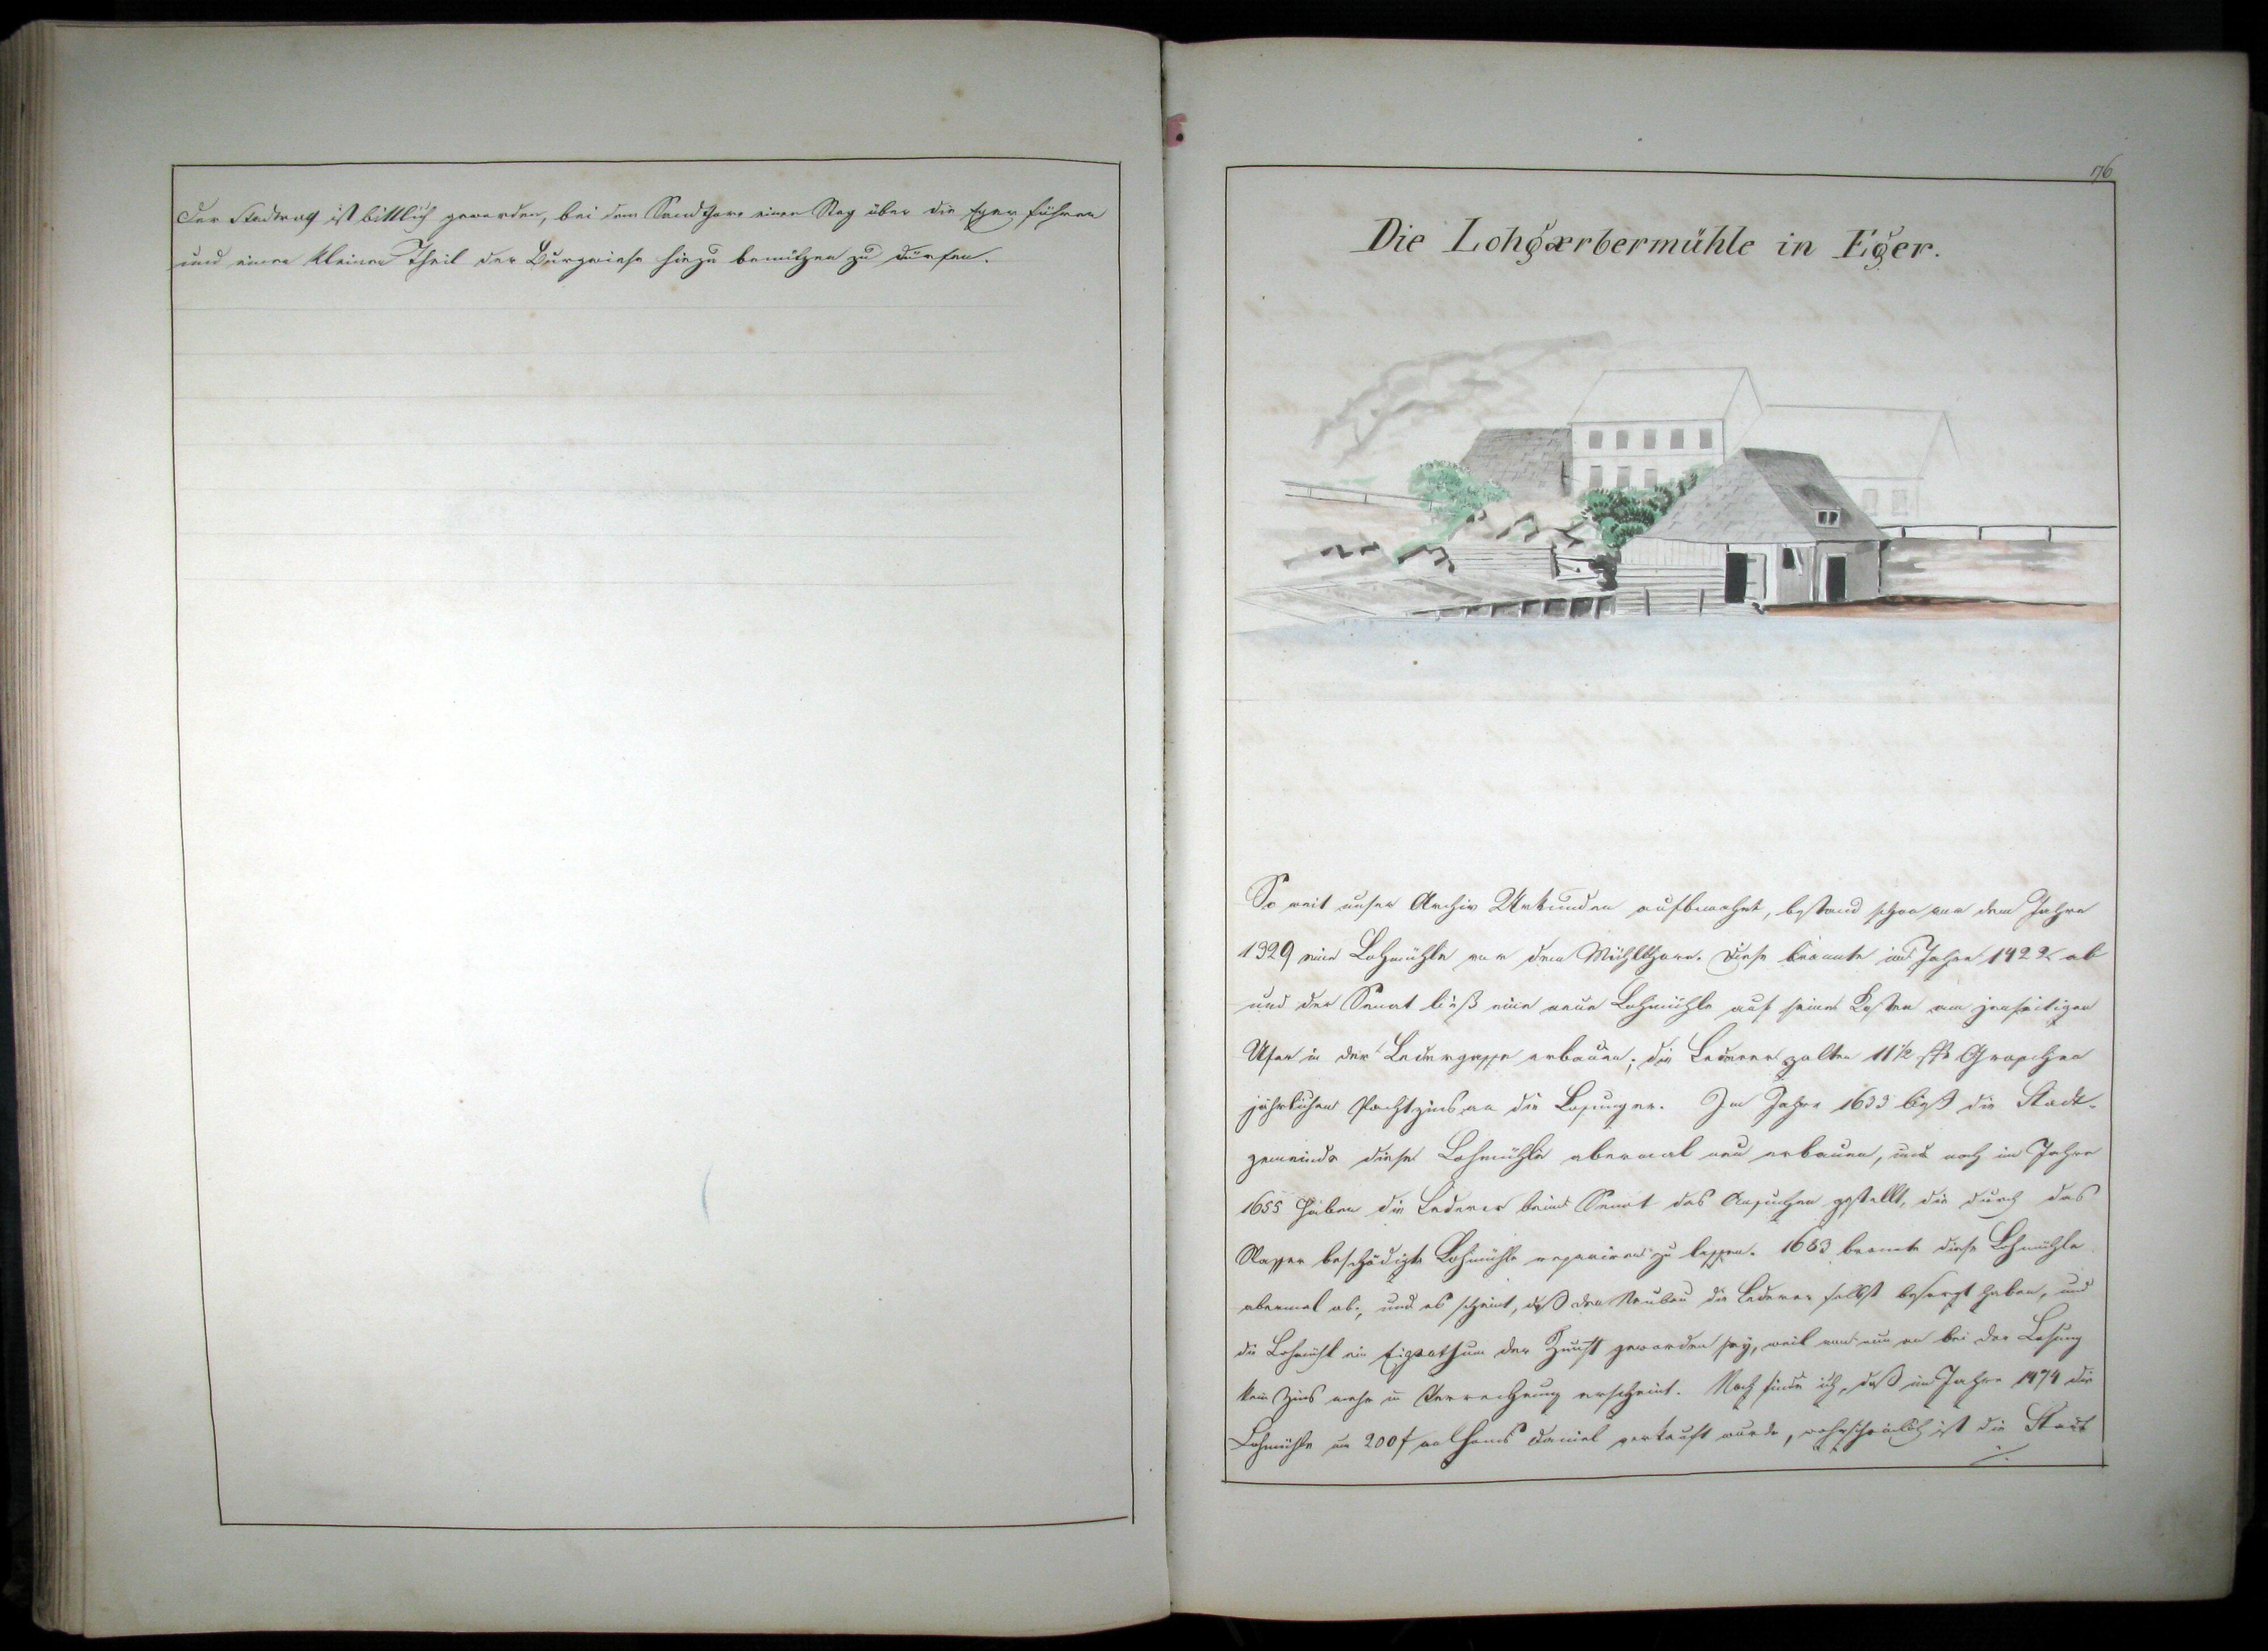 der Stadtrath ist bittlich geworden, bei dem Sandthore einen Steg über die Eger führen
und einen kleinen Theil der Burgwiese hiezu benützen zu dürfen.
76
Die Lohgærbermühle in Eger.
So weit unser Archiv Urkunden aufbewahrt, bestand schon von dem Jahre
1329 eine Lohmühle vor dem Mühlthore. Diese brannte im Jahre 1422 ab
und der Senat ließ eine neue Lohmühle auf seine Kosten am jenseitigen
Ufer in der Lederergasse erbauen; die Lederer zalten 11½ Groschen
jährlichen Pachtzins an die Losunger. Im Jahre 1633 ließ die Stadt-
gemeinde diese Lohmühle abermal neu erbauen, und noch im Jahre
1655 haben die Lederer beim Senat das Ansuchen gestellt, die durch das
Wasser beschädigte Lohmühle repariren zu lassen. 1683 brannte diese Lohmühle
abermal ab; und es scheint, daß den Neubau die Lederer selbst besorgt haben, und
die Lohmühl ein Eigenthum der Zunft geworden sey, weil von nun an bei der Losung
kein Zins mehr in Verrechnung erscheint. Noch finde ich, daß im Jahre 1474 die
Lohmühle um 200 f an Hans Daniel verkauft wurde, wahrscheinlich ist die Stadt